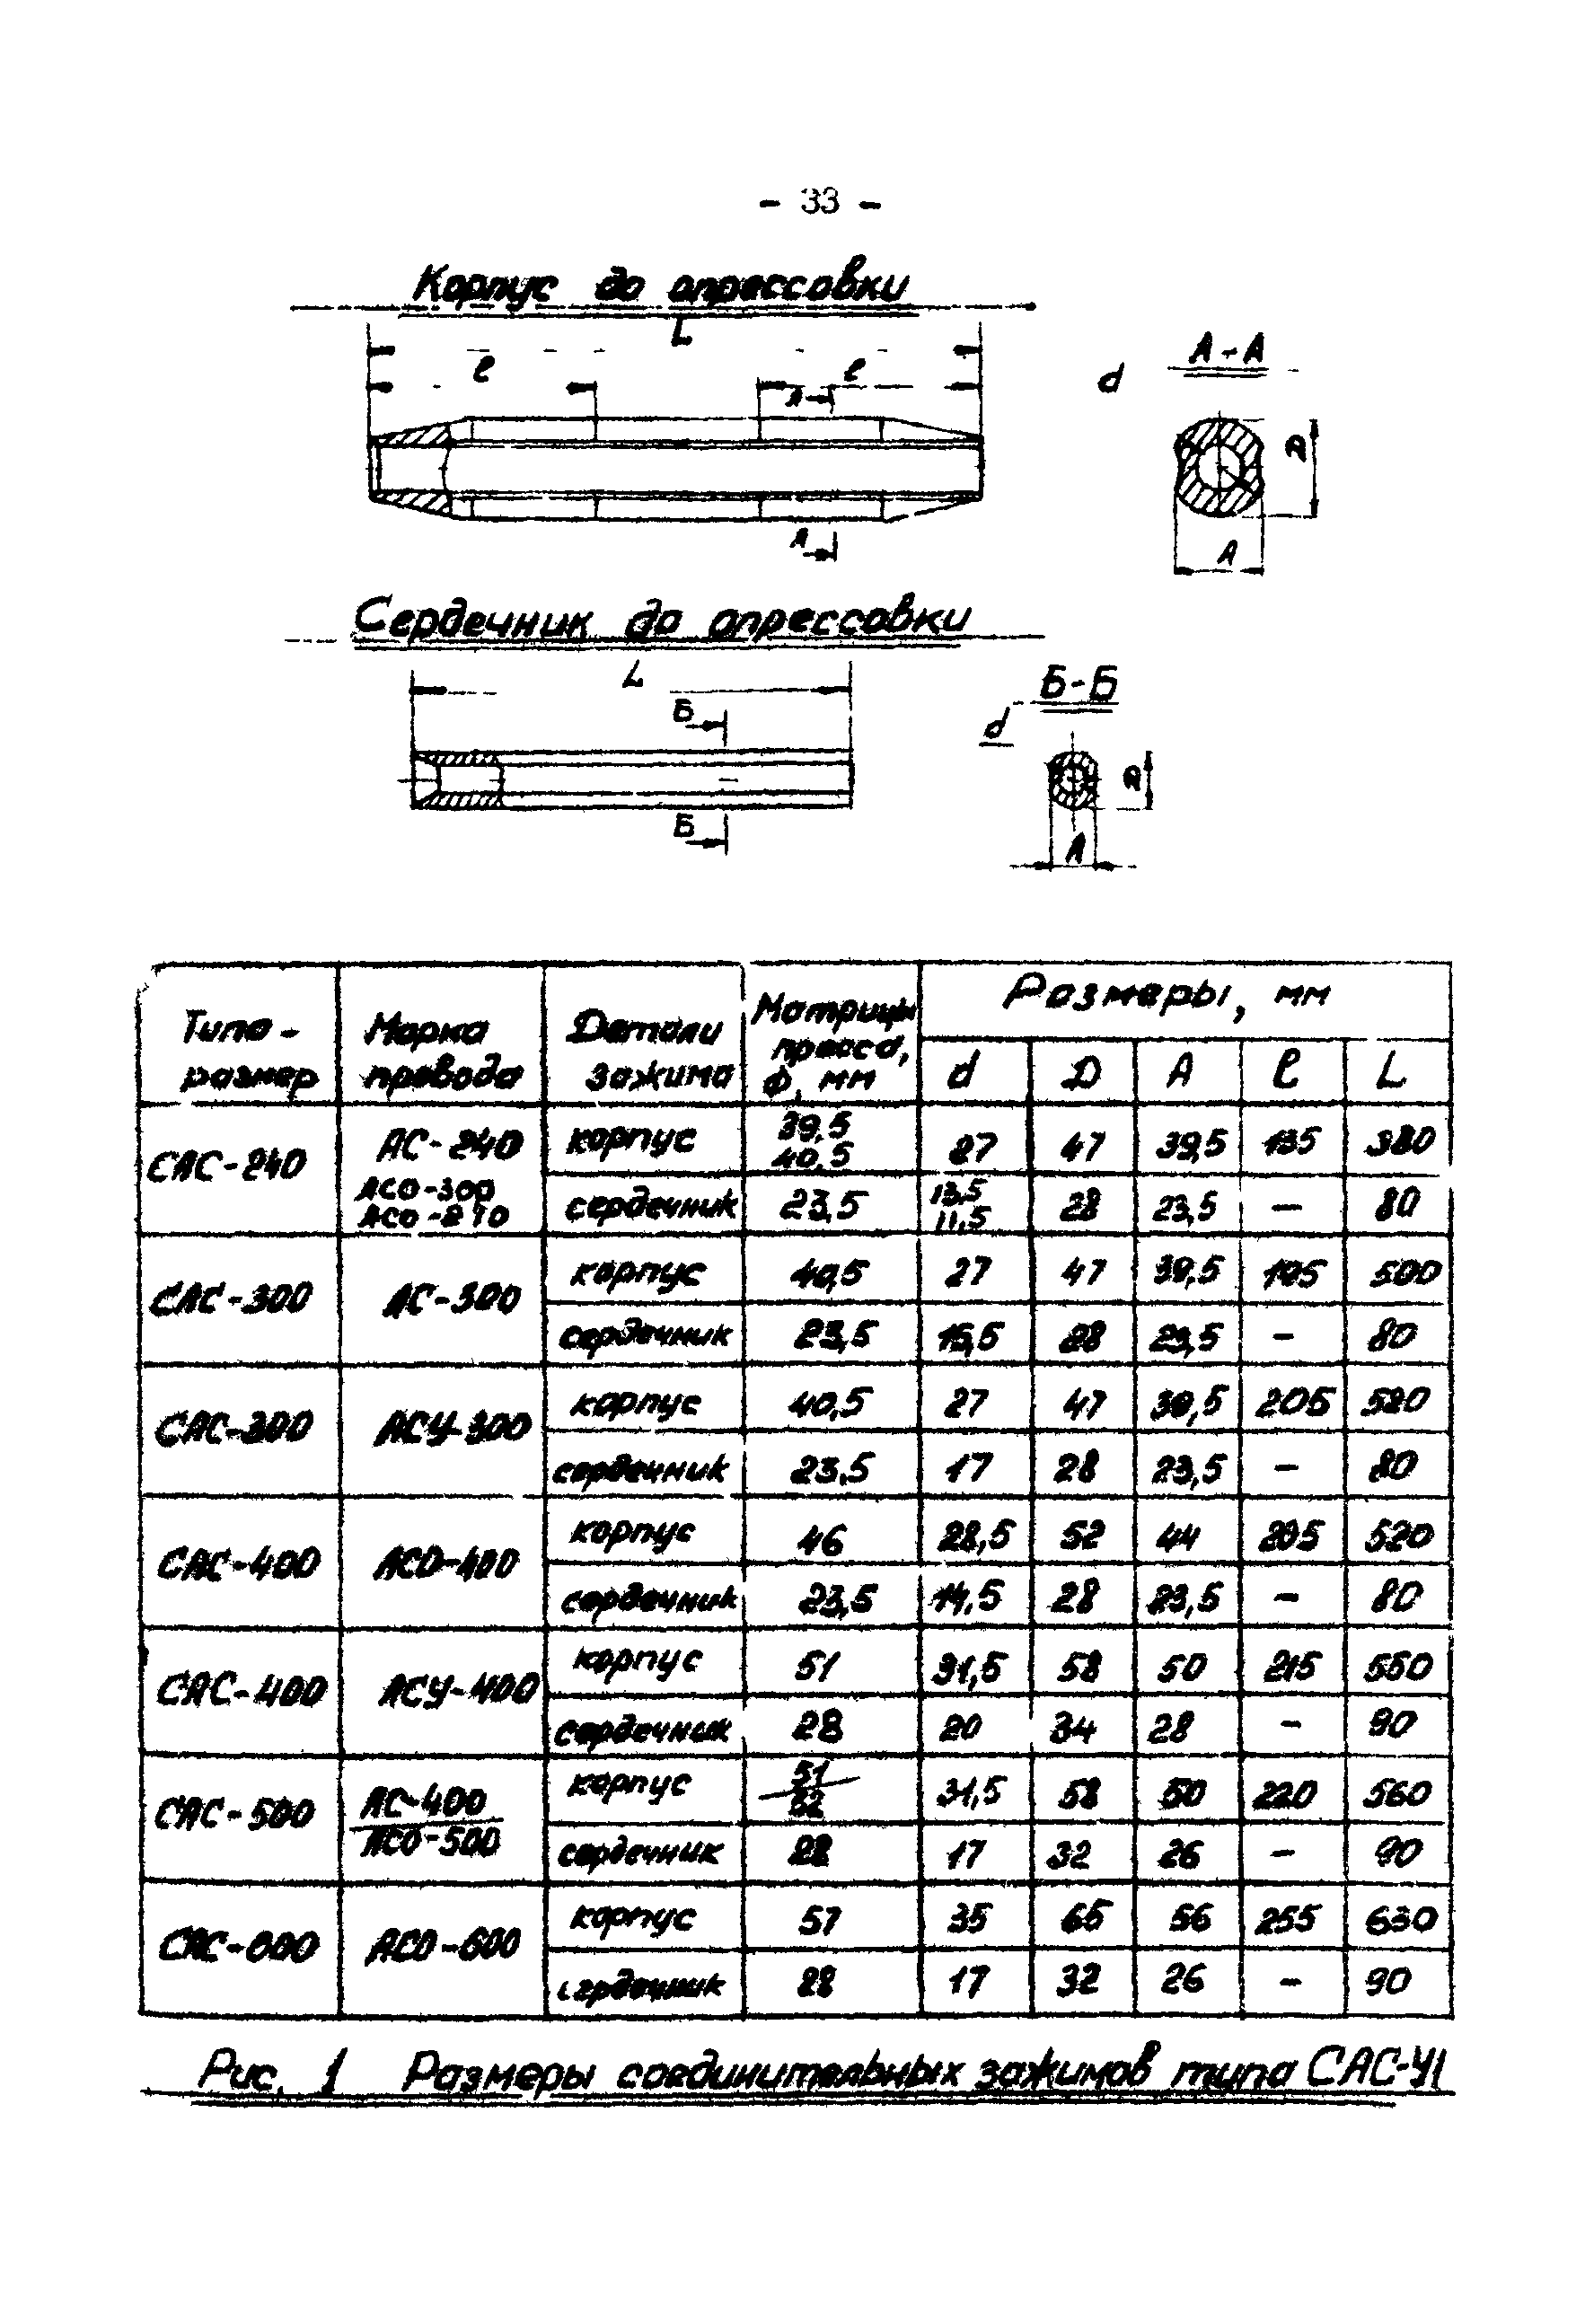 - 33 -
Корпус до опрессовки
L
l l
А
А
А-А
d
Д
А
Сердечник до опрессовки
L
Б
Б
Б-Б
d
Д
А
Типо- размер Марка провода Детали зажима Матрицы пресса, Ф, мм Размеры, мм
d Д А l L
САС-240 АС-240 АСО-300 корпус 39,5 40,5 27 47 39,5 135 380
сердечник 23,5 13,5 11,5 28 23,5 — 80
САС-300 АС-300 корпус 40,5 27 47 39,5 195 500
сердечник 23,5 15,5 28 23,5 — 80
САС-300 АСУ-300 корпус 40,5 27 47 39,5 205 520
сердечник 23,5 17 28 23,5 — 80
САС-400 АСО-400 корпус 46 28,5 52 44 205 520
сердечник 23,5 14,5 28 23,5 — 80
САС-400 АСУ-400 корпус 51 31,5 58 50 215 550
сердечник 28 20 34 28 — 90
САС-500 АС-400 АСО-500 корпус 51 52 31,5 58 50 220 560
сердечник 28 17 32 26 — 90
САС-600 АСО-600 корпус 57 35 65 56 255 630
сердечник 28 17 32 26 — 90
Рис. 1 Размеры соединительных зажимов типа САС-У1